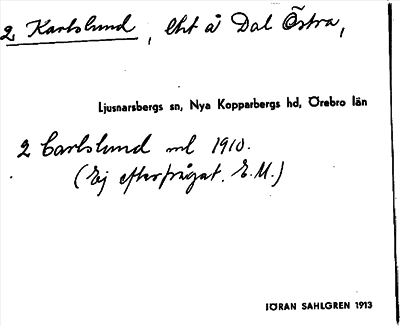 2 Karlslund, lht å Dal Östra,
Ljusnarsbergs sn, Nya Kopparbergs hd, Örebro län
2 Carlslund ml 1910.
(Ej efterfrågat. E.M.)
IÖRAN SAHLGREN 1913